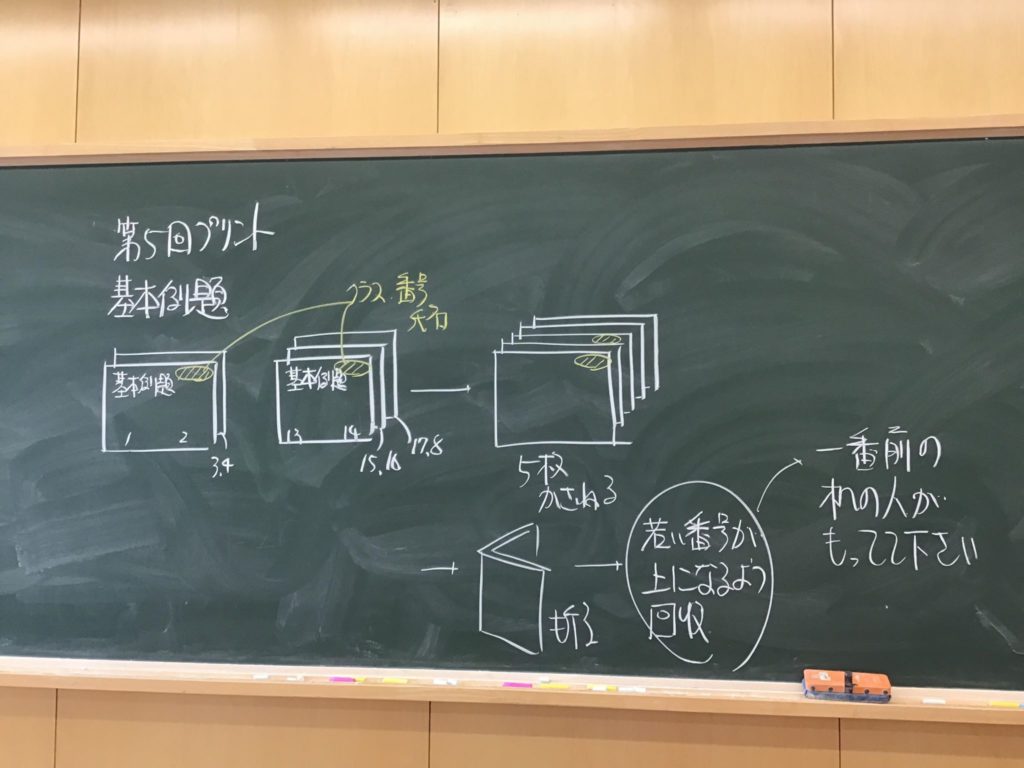 第5回プリント
基本例題
クラス 番号
氏名
基本例題
1 2
3,4
基本例題
13 14
15,16
17,8
5枚
かさねる
折る
若い番号が
上になるよう
回収
一番前の
れの人が
もってて下さい